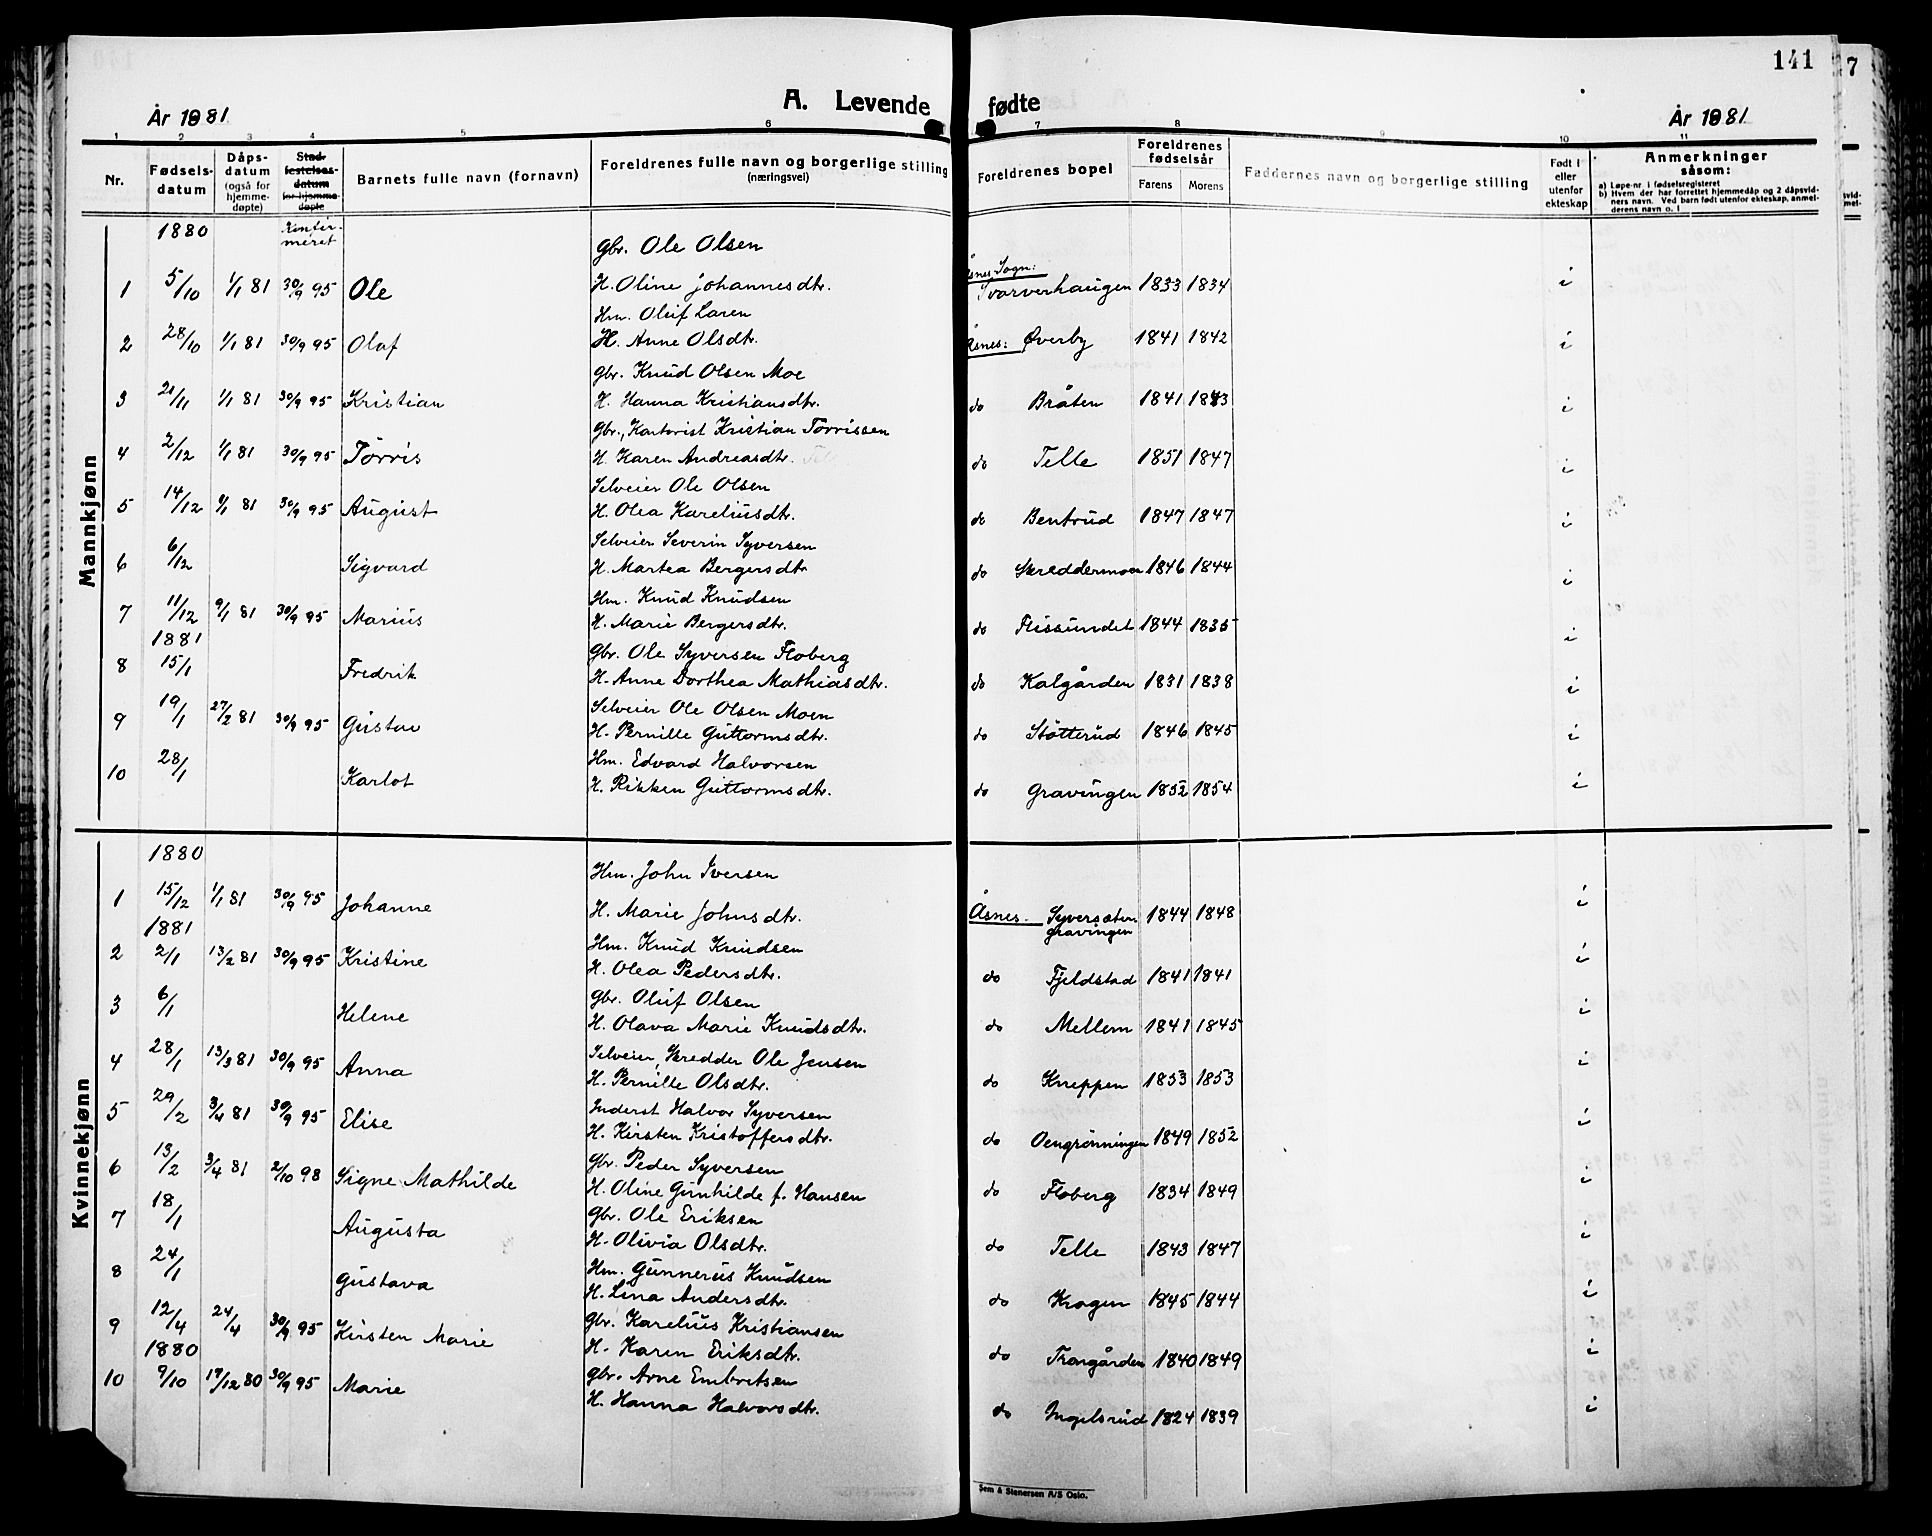 141
7
A. Levende fødte
År 1881
År 1881
1 2 3 4 5 6 7 8 9 10 11
Nr. Fødsels-datum Dåps-datum (også for hjemme-døpte) Stad-festelses-datum for hjemme-døpte Barnets fulle navn (fornavn) Foreldrenes fulle navn og borgerlige stilling (næringsvei) Foreldrenes bopel Foreldrenes fødselsår Farens Morens Faddernes navn og borgerlige stilling Født i eller utenfor ekteskap Anmerkninger såsom:
a) Løpe-nr i fødselsregisteret
b) Hvem der har forrettet hjemmedåp og 2 dåpsvid-
ners navn. Ved barn født utenfor ekteskap, anmel-
derens navn o. l
Mannkjønn
1880 Konfir-meret
gbr. Ole Olsen Åsnes Sogn:
1 5/10 1/1 81 30/9 95 Ole H. Oline Johannesdtr. Tvarverhaugen 1833 1834 i
Hm. Oluf Laren
2 28/10 1/1 81 30/9 95 Olaf H. Anne Olsdtr. Åsnes: Øverby 1841 1842 i
gbr. Knud Olsen Moe
3 21/11 1/1 81 30/9 95 Kristian H. Hanna Kristiansdtr. do Bråten 1841 1843 i
gbr., Kartorist Kristian Tørrissen
4 2/12 1/1 81 30/9 95 Tørris H. Karen Andreasdtr. do Telle 1851 1847 i
Selveier Ole Olsen
5 14/12 9/1 81 30/9 95 August H. Olea Kareliusdtr. do Bentrud 1847 1847 i
Selveier Severin Syversen
6 6/12 Sigvard H. Martea Bergersdtr do Skreddermoen 1846 1844 i
Hm. Knud Knudsen
7 11/12 9/1 81 30/9 95 Marius H. Marie Bergersdtr. do Flissundet 1844 1835 i
1881
gbr. Ole Syversen Floberg
8 15/1 Fredrik H. Anne Dorthea Mathiasdtr. do Kalgården 1831 1838 i
Selveier Ole Olsen Moen
9 19/1 27/2 81 30/9 95 Gustav H. Pernille Guttormsdtr. do Støtterud 1846 1845 i
Hm. Edvard Halvorsen
10 28/1 Karlot H. Rikken Guttormsdtr. do Gravingen 1852 1854 i
Kvinnekjønn
1880
Hm. John Iversen
1 15/12 1/1 81 30/9 95 Johanne H. Marie Johnsdtr. Åsnes. Syversætern gravingen 1844 1848 i
1881
Hm. Knud Knudsen
2 2/1 13/2 81 30/9 95 Kristine H. Olea Pedersdtr. do Fjeldstad 1841 1841 i
gbr. Oluf Olsen
3 6/1 Helene H. Olava Marie Knudsdtr. do Mellem 1841 1845 i
Selveier, Skredder Ole Jensen
4 28/1 13/3 81 30/9 95 Anna H. Pernille Olsdtr. do Kneppen 1853 1853 i
Inderst Halvor Syversen
5 29/2 3/4 81 30/9 95 Elise H. Kirsten Kristoffersdtr. do Oengrønningen 1849 1852 i
gbr. Peder Syversen
6 13/2 3/4 81 2/10 98 Signe Mathilde H. Oline Gunhilde f. Hansen do Floberg 1834 1849 i
gbr. Ole Eriksen
7 18/1 Augusta H. Olivia Olsdtr. do Telle 1843 1847 i
Hm. Gunnerus Knudsen
8 24/1 Gustava H. Lina Andersdtr. do Krogen 1845 1844 i
gbr. Karelius Kristiansen
9 12/4 24/4 30/9 95 Kirsten Marie H. Karen Eriksdtr. do Trangården 1840 1849 i
1880
gbr. Arne Embretsen
10 9/10 19/12 80 30/9 95 Marie H. Hanna Halvorsdtr. do Ingelsrud 1824 1839 i
Sem & Stenersen A/S Oslo.